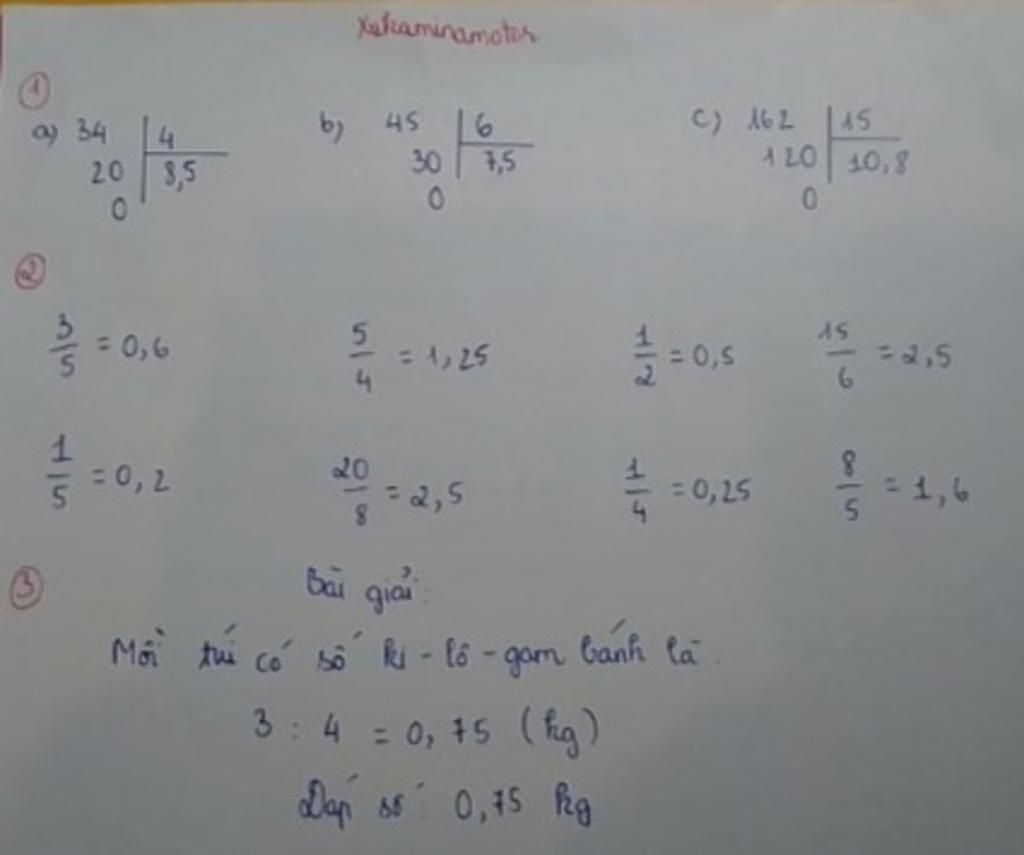 Xukaminamotor
1
a) 34 | 4 b) 45 | 6 c) 162 | 15
20 | 8,5 30 | 7,5 120 | 10,8
0 0 0
2
3/5 = 0,6 5/4 = 1,25 1/2 = 0,5 15/6 = 2,5
1/5 = 0,2 20/8 = 2,5 1/4 = 0,25 8/5 = 1,6
3 Bài giải:
Mỗi túi có số ki-lô-gam bánh là:
3 : 4 = 0,75 (kg)
Đáp số: 0,75 kg